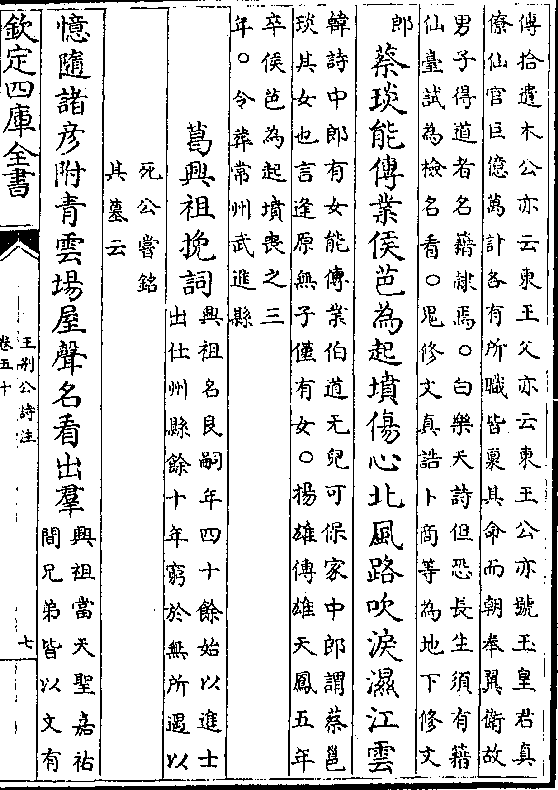 傳拾遺木公亦云東王父亦云東王公亦號玉皇君真
僚仙官巨億萬計各有所職皆禀其命而朝奉翼衛故
男子得道者名籍隷焉○白樂天詩但恐長生須有籍
仙臺試為檢名看○鬼修文真誥卜商等為地下修文
郎
蔡琰能傳業侯芭為起墳傷心北風路吹淚濕江雲
韓詩中郎有女能傳業伯道无兒可保家中郎謂蔡邕
琰其女也言逢原無子僅有女○楊雄傳雄天鳳五年
卒侯芭為起墳喪之三
年○令葬常州武進縣
葛興祖挽詞
興祖名良嗣年四十餘始以進士
出仕州縣餘十年窮於無所遇以
死公嘗銘
其墓云
憶隨諸彦附青雲場屋聲名看出羣
興祖當天聖嘉祐
間兄弟皆以文有
欽定四庫全書
王荆公詩注
卷五十
七